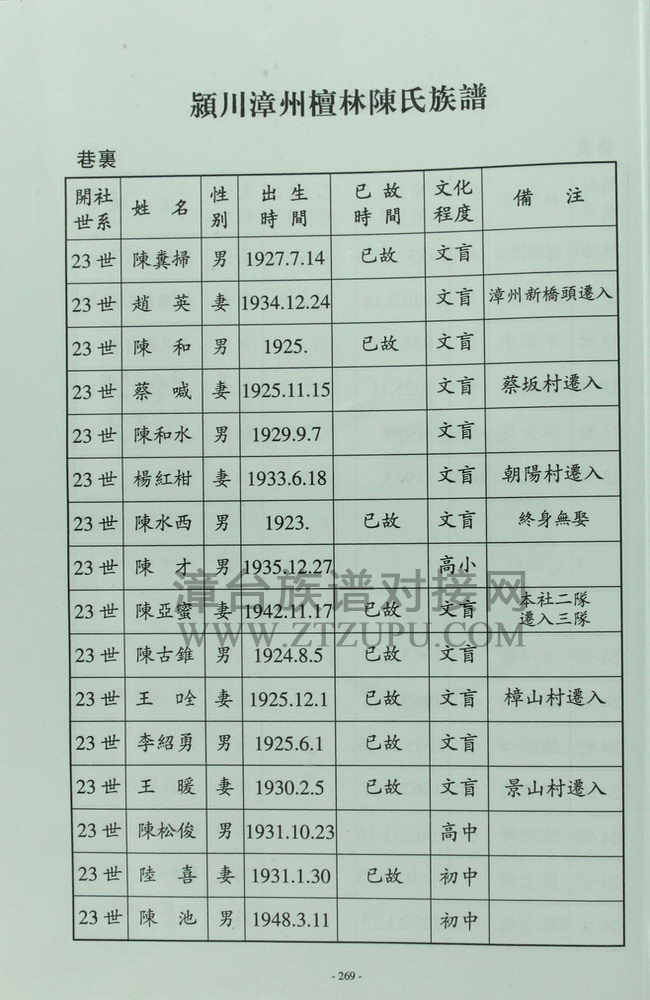 潁川漳州檀林陳氏族譜
巷裏
開社世系 姓 名 性别 出生時間 已故時間 文化程度 備 注
23世 陳糞掃 男 1927.7.14 已故 文盲
23世 趙 英 妻 1934.12.24 文盲 漳州新橋頭遷入
23世 陳 和 男 1925. 已故 文盲
23世 蔡 喊 妻 1925.11.15 文盲 蔡坂村遷入
23世 陳和水 男 1929.9.7 文盲
23世 楊紅柑 妻 1933.6.18 文盲 朝陽村遷入
23世 陳水西 男 1923. 已故 文盲 終身無娶
23世 陳 才 男 1935.12.27 高小
23世 陳亞蜜 妻 1942.11.17 已故 文盲 本社二隊遷入三隊
23世 陳古錐 男 1924.8.5 已故 文盲
23世 王 唫 妻 1925.12.1 已故 文盲 樟山村遷入
23世 李紹勇 男 1925.6.1 已故 文盲
23世 王 暖 妻 1930.2.5 已故 文盲 景山村遷入
23世 陳松俊 男 1931.10.23 高中
23世 陸 喜 妻 1931.1.30 已故 初中
23世 陳 池 男 1948.3.11 初中
漳台族谱对接网
WWW.ZTZUPU.COM
- 269 -